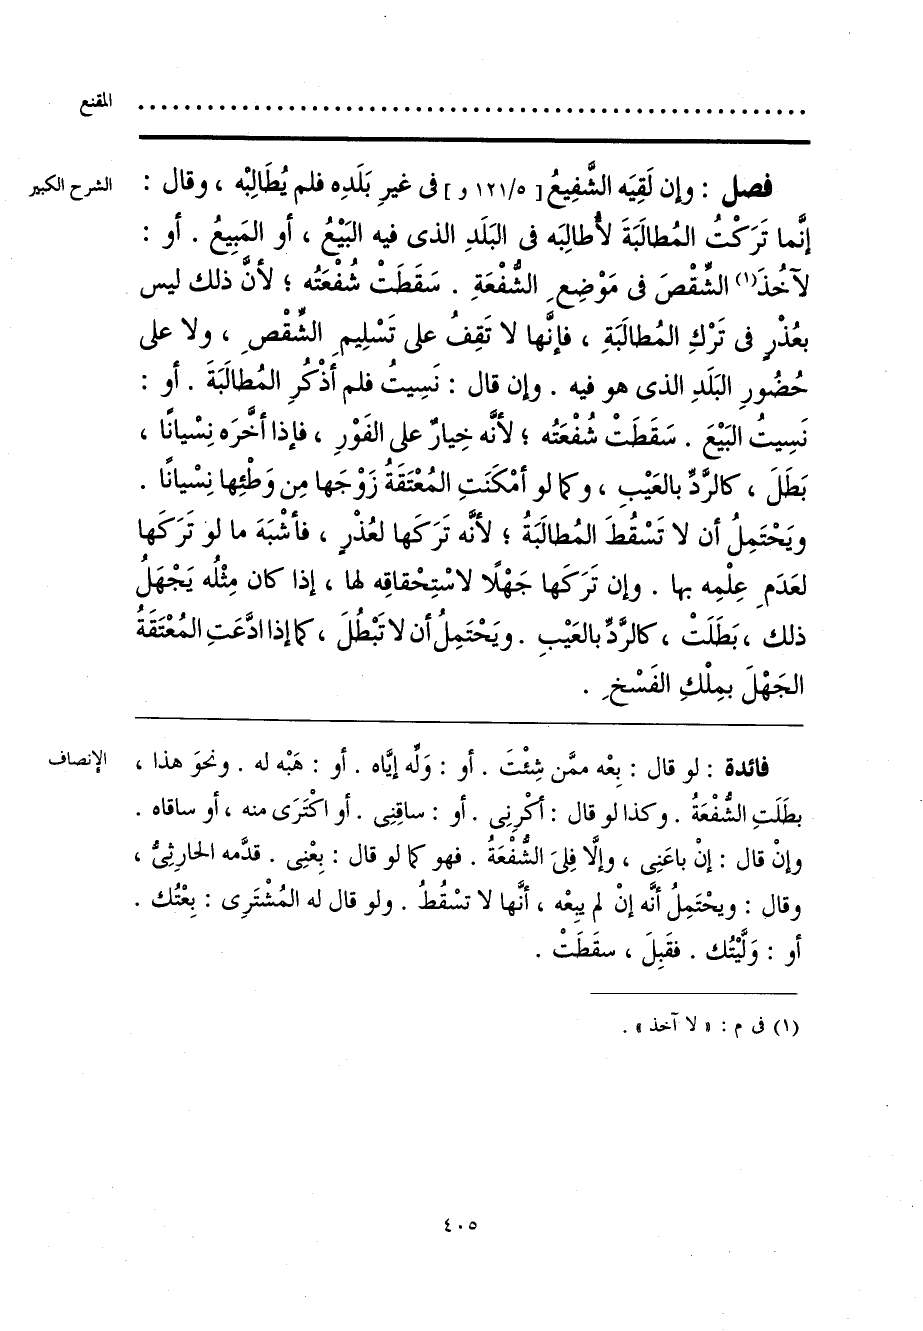 المقنع ............................................................
الشرح الكبير
فصل : وإن لَقِيَه الشَّفِيعُ [ ١٢١/٥ و ] فى غيرِ بَلَدِه فلم يُطَالِبْه ، وقال :
إنَّما تَرَكْتُ المُطالَبَةَ لأُطالِبَه فى البَلَدِ الذى فيه البَيْعُ ، أو المَبِيعُ . أو :
لآخُذَ(١) الشِّقْصَ فى مَوْضِعِ الشُّفْعَةِ . سَقَطَتْ شُفْعَتُه ؛ لأنَّ ذلك ليس
بعُذْرٍ فى تَرْكِ المُطالَبَةِ ، فإنَّها لا تَقِفُ على تَسْلِيمِ الشِّقْصِ ، ولا على
حُضُورِ البَلَدِ الذى هو فيه . وإن قال : نَسِيتُ فلم أذْكُرِ المُطالَبَةَ . أو :
نَسِيتُ البَيْعَ . سَقَطَتْ شُفْعَتُه ؛ لأنَّه خِيارٌ على الفَوْرِ ، فإذا أخَّرَه نِسْيانًا ،
بَطَلَ ، كالرَّدِّ بالعَيْبِ ، وكما لو أمْكَنَتِ المُعْتَقَةُ زَوْجَها مِن وَطْئِها نِسْيانًا .
ويَحْتَمِلُ أن لا تَسْقُطَ المُطالَبَةُ ؛ لأنَّه تَرَكَها لعُذْرٍ ، فأشْبَهَ ما لو تَرَكَها
لعَدَمِ عِلْمِه بها . وإن تَرَكَها جَهْلًا لاسْتِحْقاقِه لها ، إذا كان مِثْلُه يَجْهَلُ
ذلك ، بَطَلَتْ ، كالرَّدِّ بالعَيْبِ . ويَحْتَمِلُ أن لا تَبْطُلَ ، كما إذا ادَّعَتِ المُعْتَقَةُ
الجَهْلَ بمِلْكِ الفَسْخِ .
الإنصاف
فائدة : لو قال : بِعْه ممَّن شِئْتَ . أو : وَلِّه إيَّاه . أو : هَبْه له . ونحوَ هذا ،
بطَلَتِ الشُّفْعَةُ . وكذا لو قال : أكْرِنِى . أو : ساقِنِى . أو اكْتَرَى منه ، أو ساقاه .
وإنْ قال : إنْ باعَنِى ، وإلَّا فلِىَ الشُّفْعَةُ . فهو كما لو قال : بِعْنِى . قدَّمه الحارثِىُّ ،
وقال : ويحْتَمِلُ أنَّه إنْ لم يبِعْه ، أنَّها لا تسْقُطُ . ولو قال له المُشْتَرِى : بِعْتُك .
أو : وَلَّيْتُك . فقَبِلَ ، سقَطَتْ .
(١) فى م : « لا آخذ » .
٤٠٥